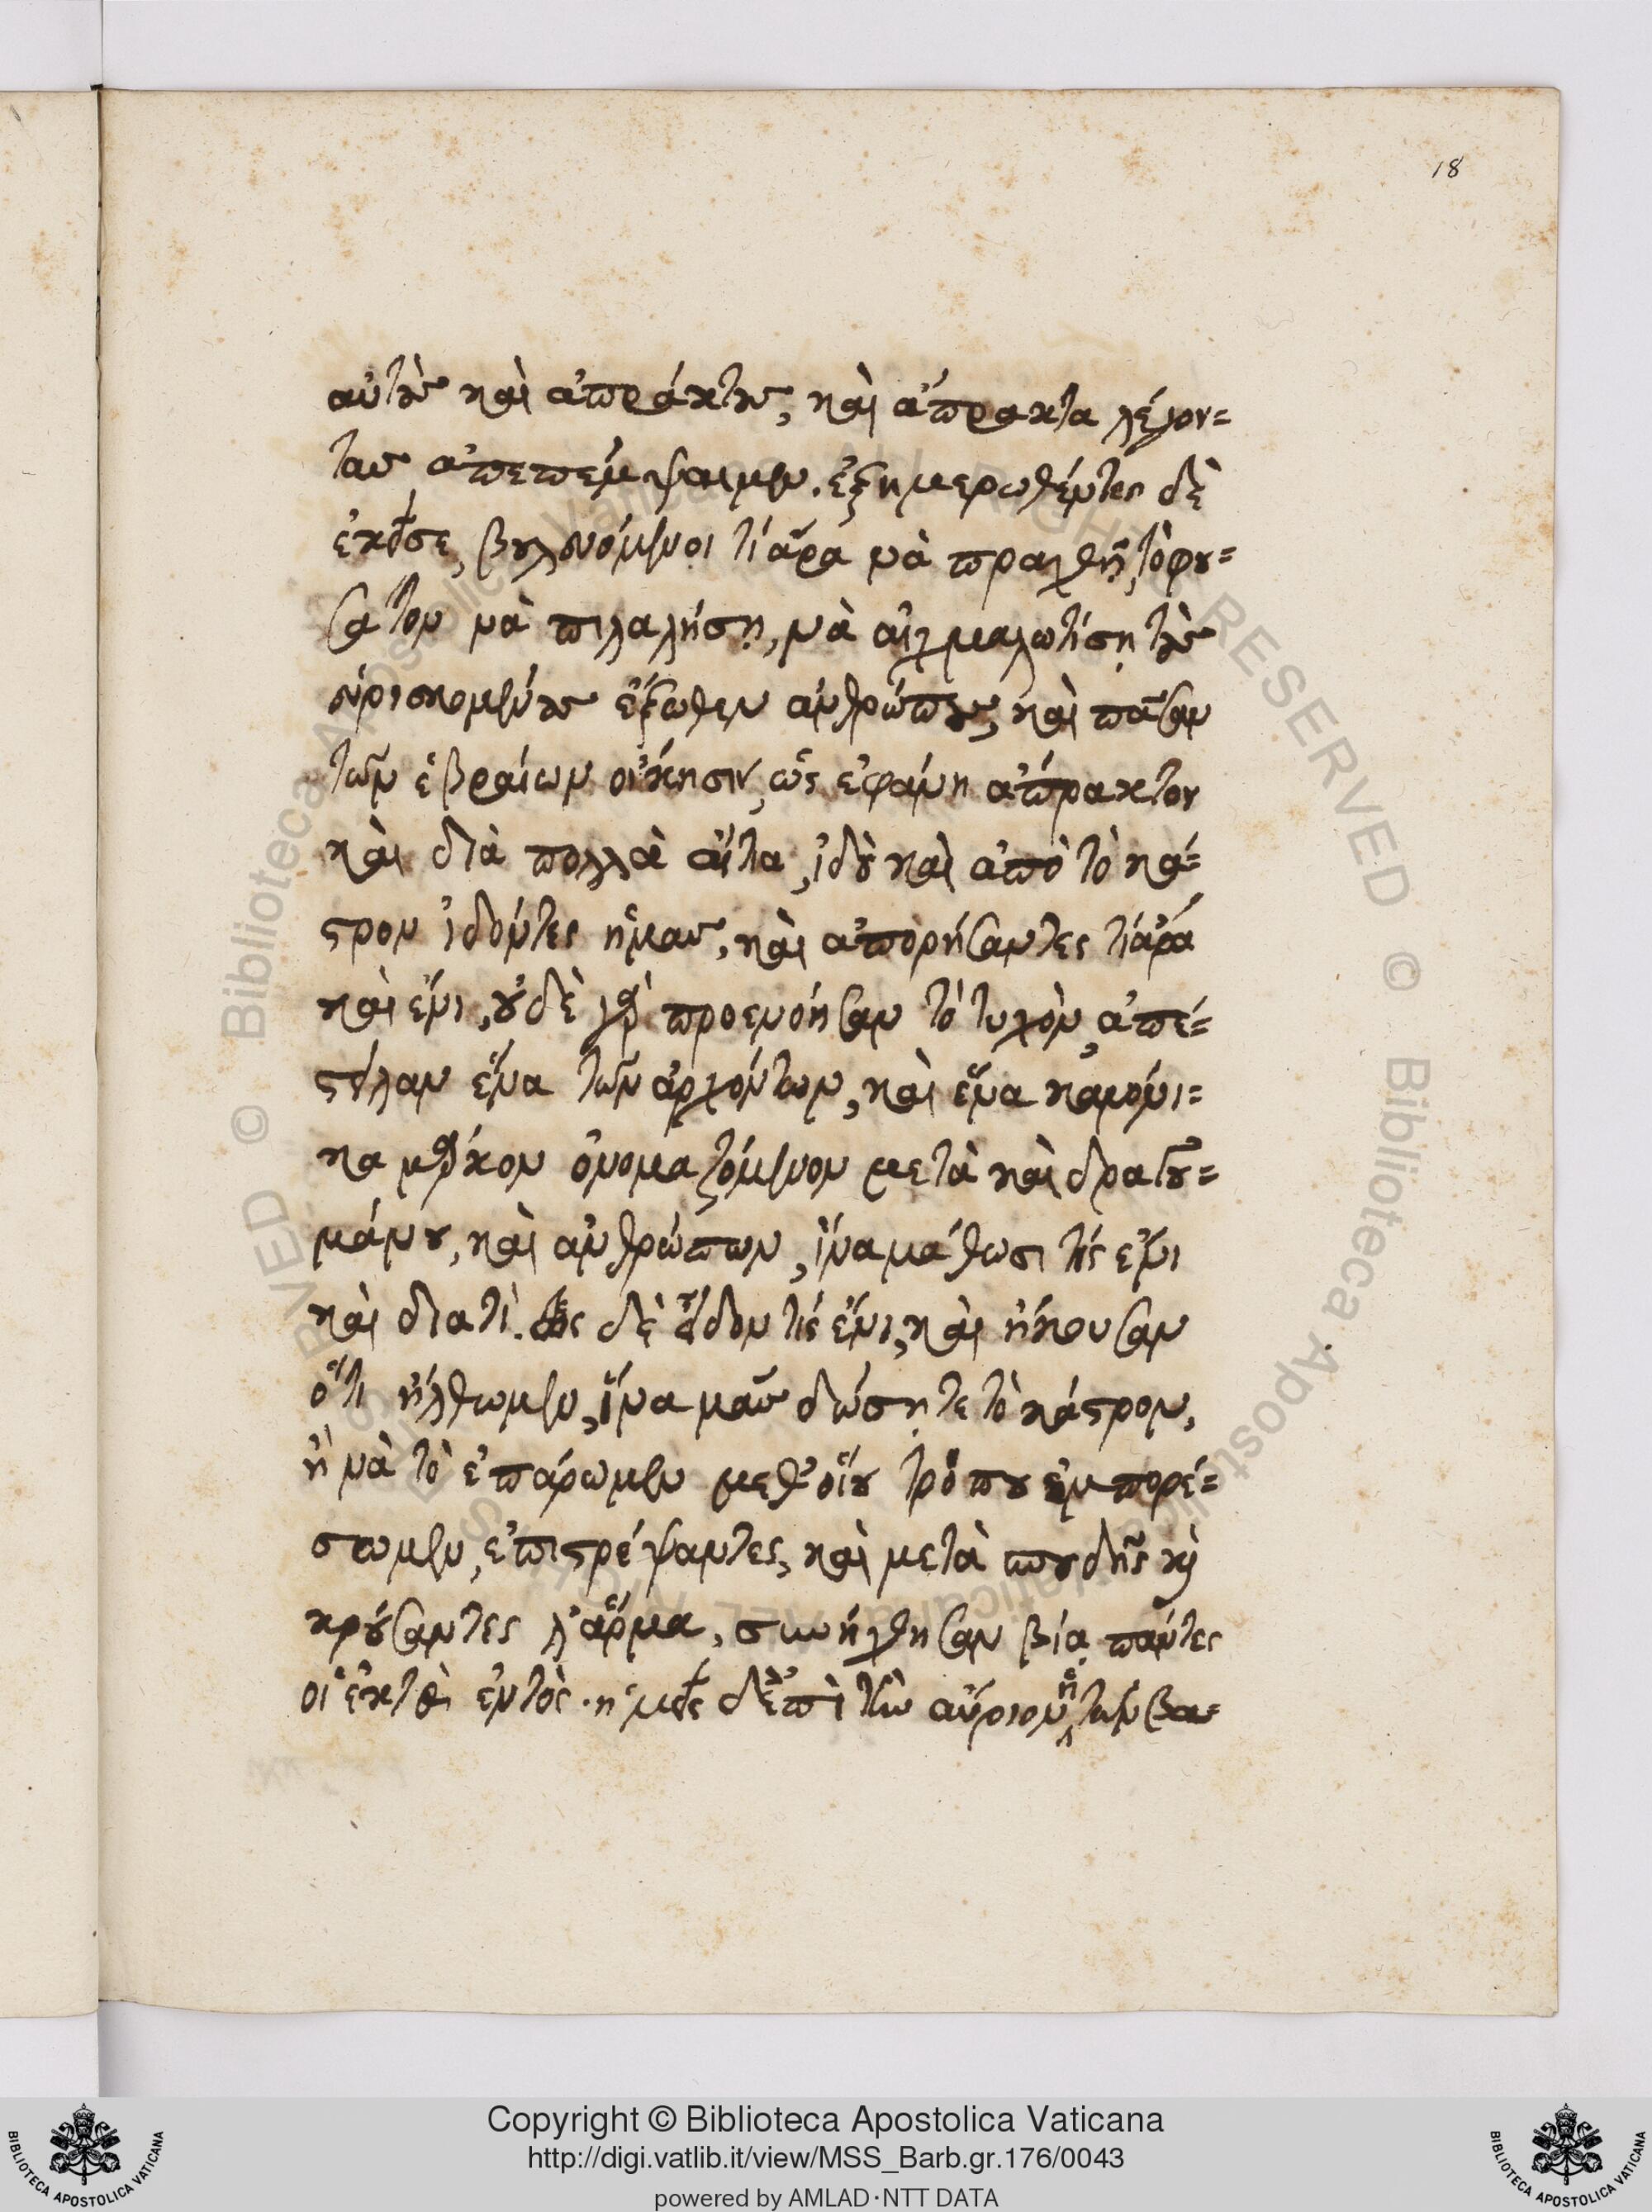 18
αὐτοὺς καὶ ἀπράκτους, καὶ ἄπρακτα λέγον=
τας ἀπεπέμψαμεν. ἐξημερωθέντες δὲ
ἐκεῖσε, βουλευόμενοι τί ἄρα νὰ πραχθῇ, τὸ φου=
σάτον νὰ πιλαλήσῃ, νὰ αἰχμαλωτίσῃ τοὺς
εὑρισκομένους ἔξωθεν ἀνθρώπους, καὶ πᾶσαν
τῶν ἑβραίων οἴκησιν, ὡς ἐφάνη ἄπρακτον
καὶ διὰ πολλὰ αἴτια, ἰδοὺ καὶ ἀπὸ τὸ κά=
στρον ἰδόντες ἡμᾶς, καὶ ἀπορήσαντες τί ἄρα
καὶ ἔνι, οὐδὲ γὰρ προενόησαν τὸ τυχὸν, ἀπέ=
στειλαν ἕνα τῶν ἀρχόντων, καὶ ἕνα κανόνι=
κα μάρκον ὀνομαζόμενον μετὰ καὶ δραγου=
μάνου, καὶ ἀνθρώπων, ἵνα μάθωσι τίς ἔνι
καὶ διατί. ὡς δὲ εἶδον τίς ἔνι, καὶ ἤκουσαν
ὅτι ἤλθωμεν, ἵνα μᾶς δώσῃτε τὸ κάστρον,
ἢ νὰ τὸ ἐπάρωμεν μεθ' οἵου τρόπου ἐμπορέ=
σωμεν, ἐπιστρέψαντες, καὶ μετὰ σπουδῆς καὶ
κρούσαντες λ' ἄρμα, συνήχθησαν βίᾳ πάντες
οἱ ἐκτὸς ἐντὸς. ἡμεῖς δὲ ἐπὶ τὴν αὔριον ἢ τῶν βα=
Copyright © Biblioteca Apostolica Vaticana
http://digi.vatlib.it/view/MSS_Barb.gr.176/0043
powered by AMLAD·NTT DATA
BIBLIOTECA APOSTOLICA VATICANA
BIBLIOTECA APOSTOLICA VATICANA